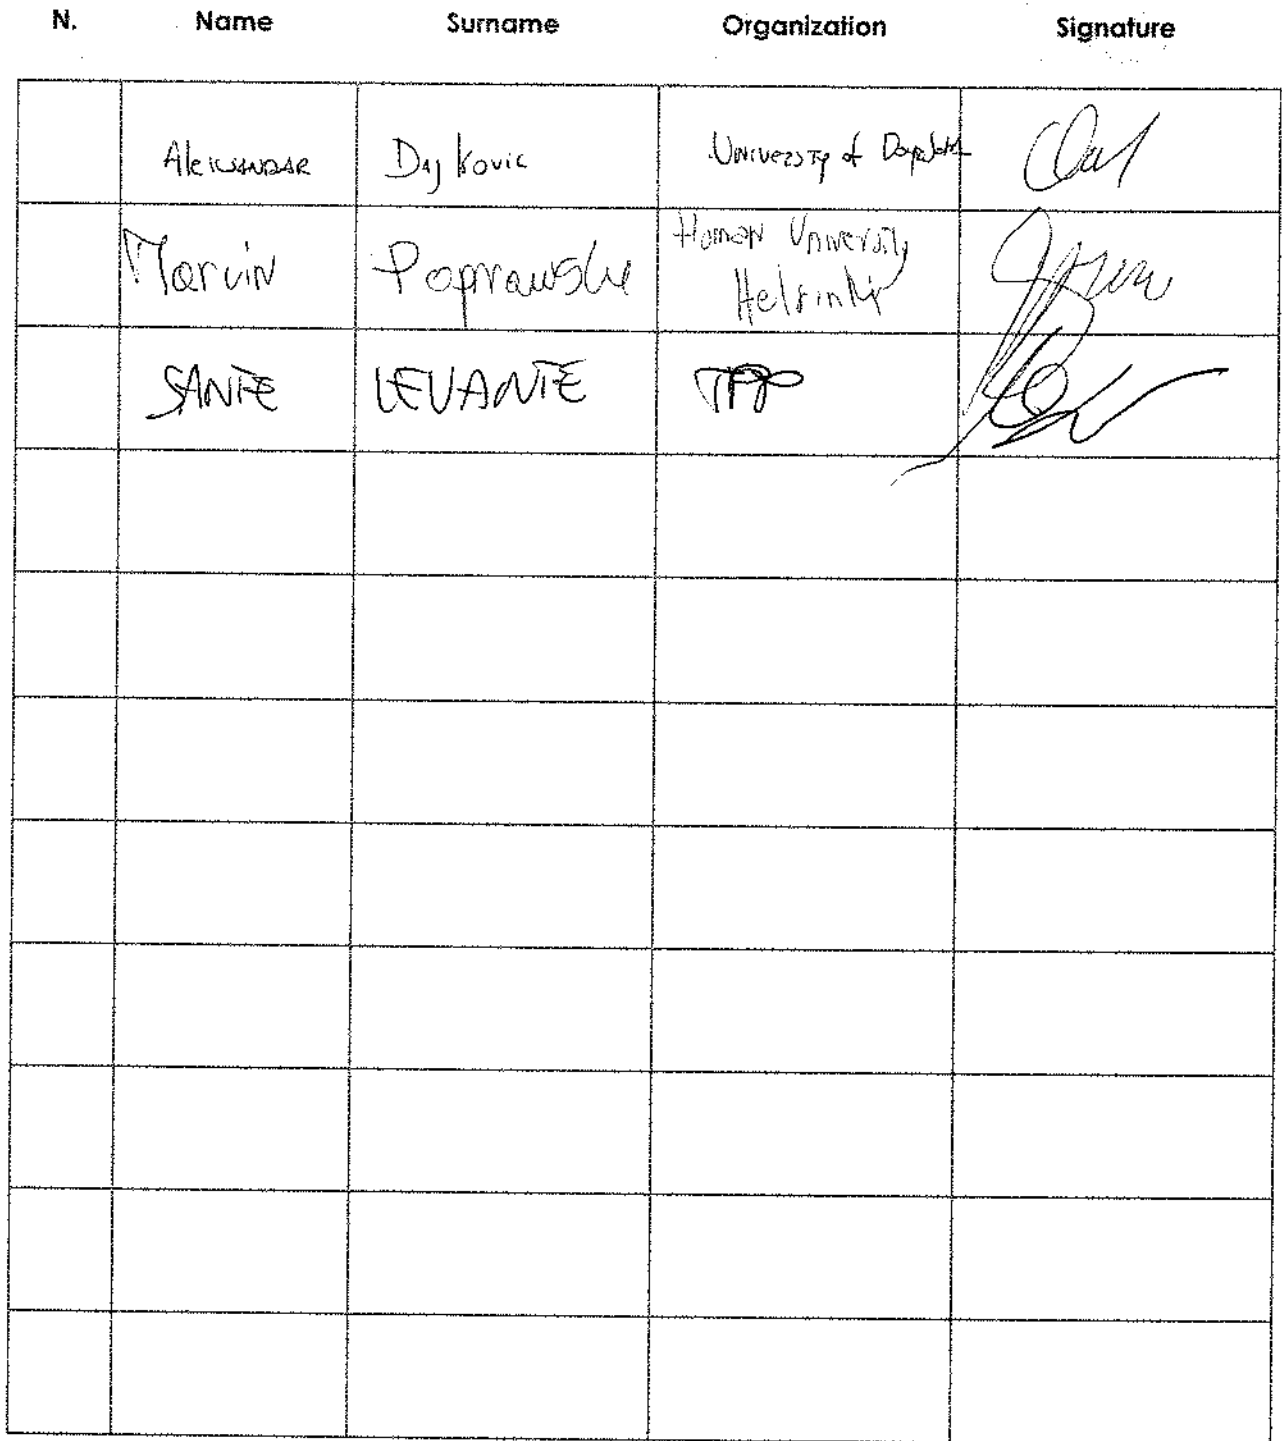 N. Name Surname Organization Signature
Aleksandar Dajkovic University of
Marvin Poprawski Human University
Helsinki
SANTE LEVANTE